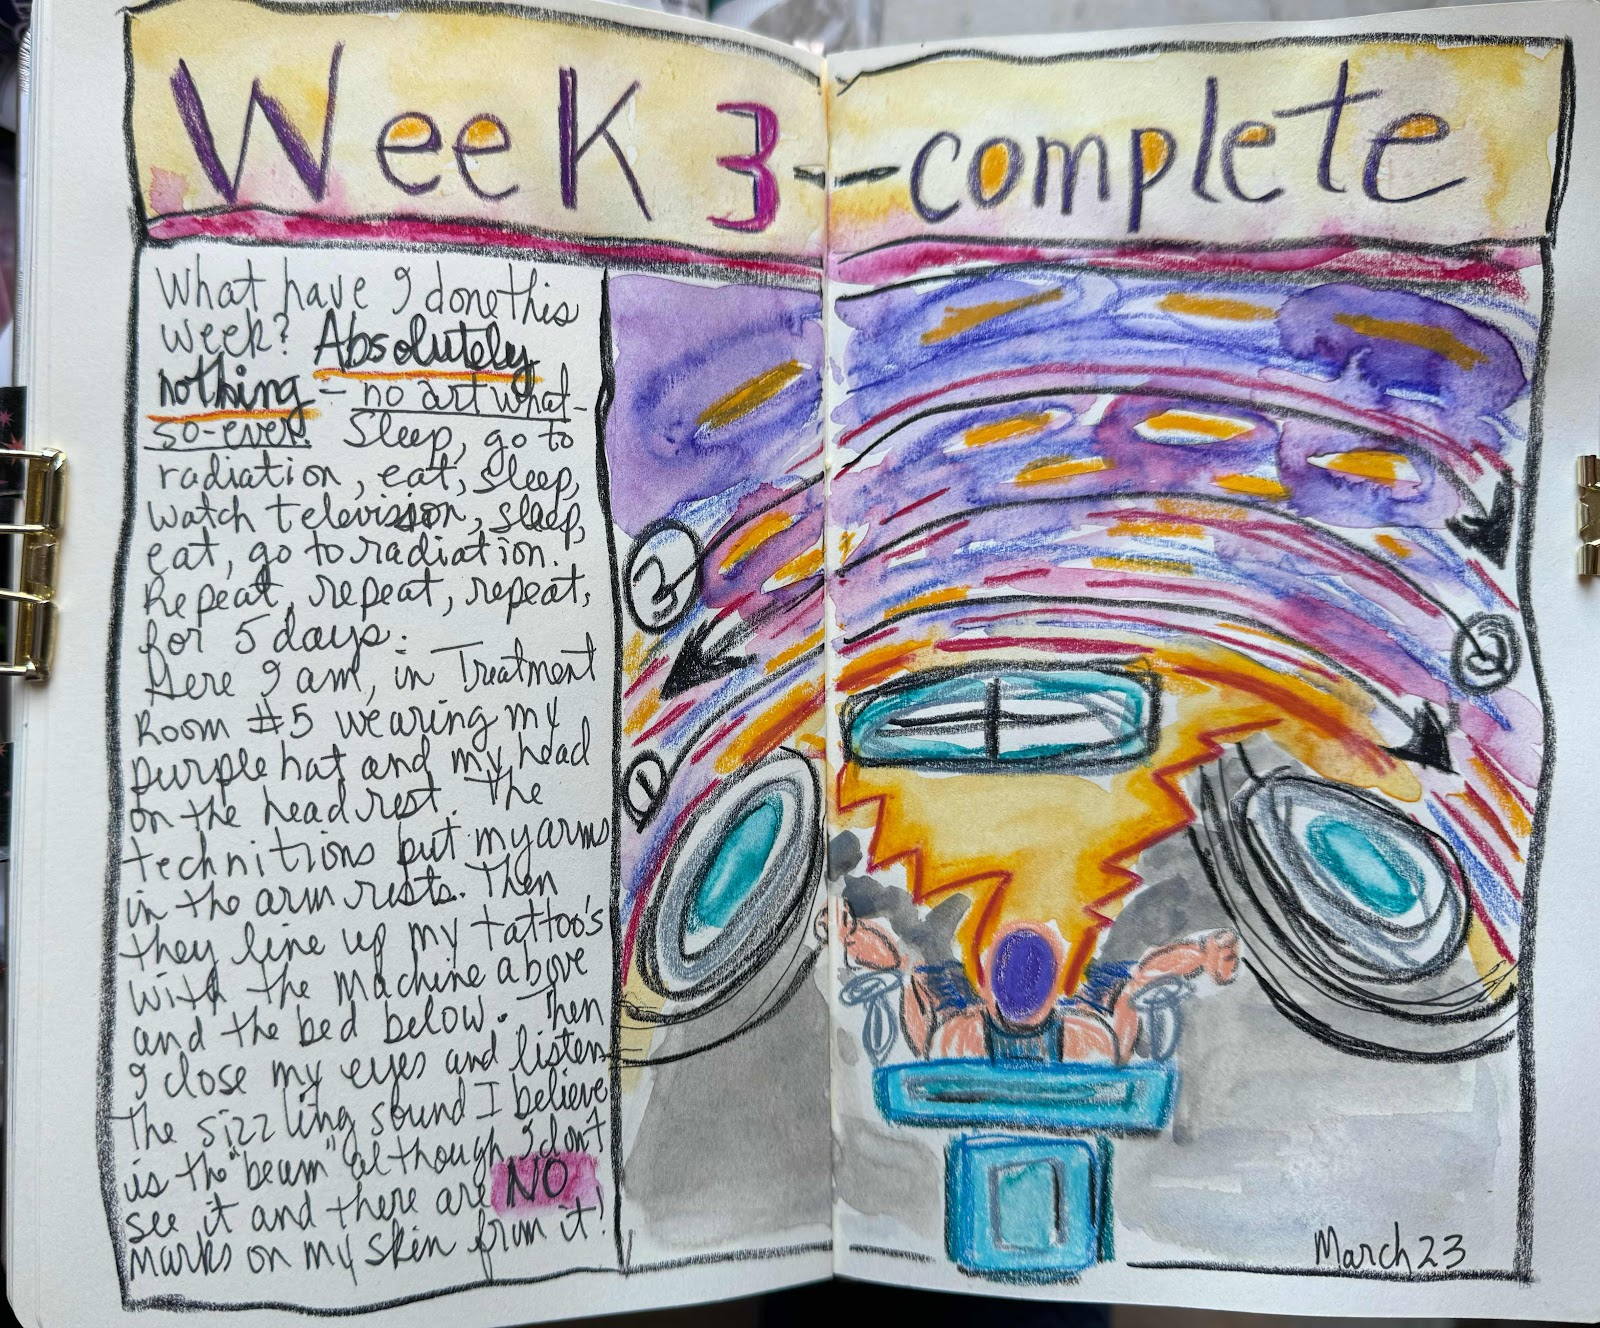 Week 3--complete
What have I done this
week? Absolutely
nothing - no art what-
so-ever. Sleep, go to
radiation, eat, sleep,
watch television, sleep,
eat, go to radiation.
Repeat, repeat, repeat,
for 5 days.
Here I am, in Treatment
Room #5 wearing my
purple hat and my head
on the head rest. The
technitions put my arms
in the arm rests. Then
they line up my tattoo's
with the machine above
and the bed below. Then
I close my eyes and listen
The sizzling sound I believe
is the "beam" although I don't
see it and there are NO
marks on my skin from it!
3
2
1
March 23